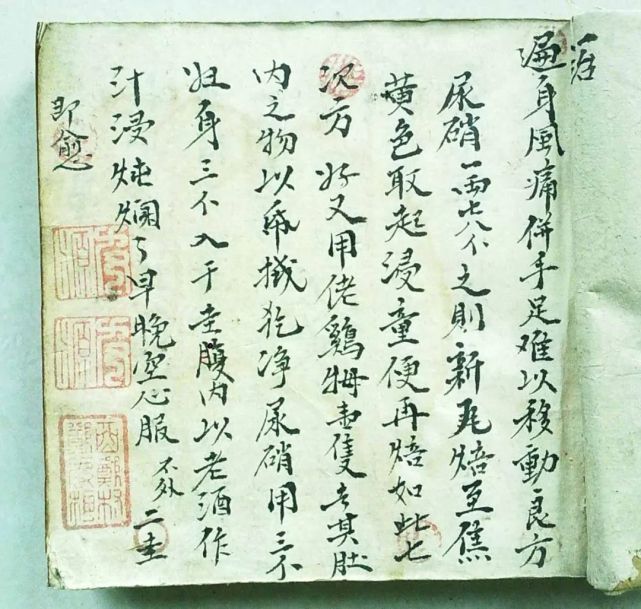 遍身風痛併手足难以移動良方
尿硝一両七八个之則新瓦焙至焦
黄色取起浸童便再焙如此七
次方好又用佬鷄牳壹隻去其肚
内之物以帋搣乾净尿硝用三个
妇身三个入于圭腹内以老酒作
汁浸炖爛了早晚空心服不外二圭
即愈